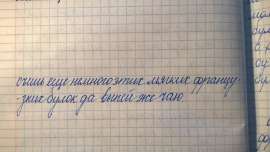 съешь еще немного этих мягких францу-
зких булок да выпей же чаю.